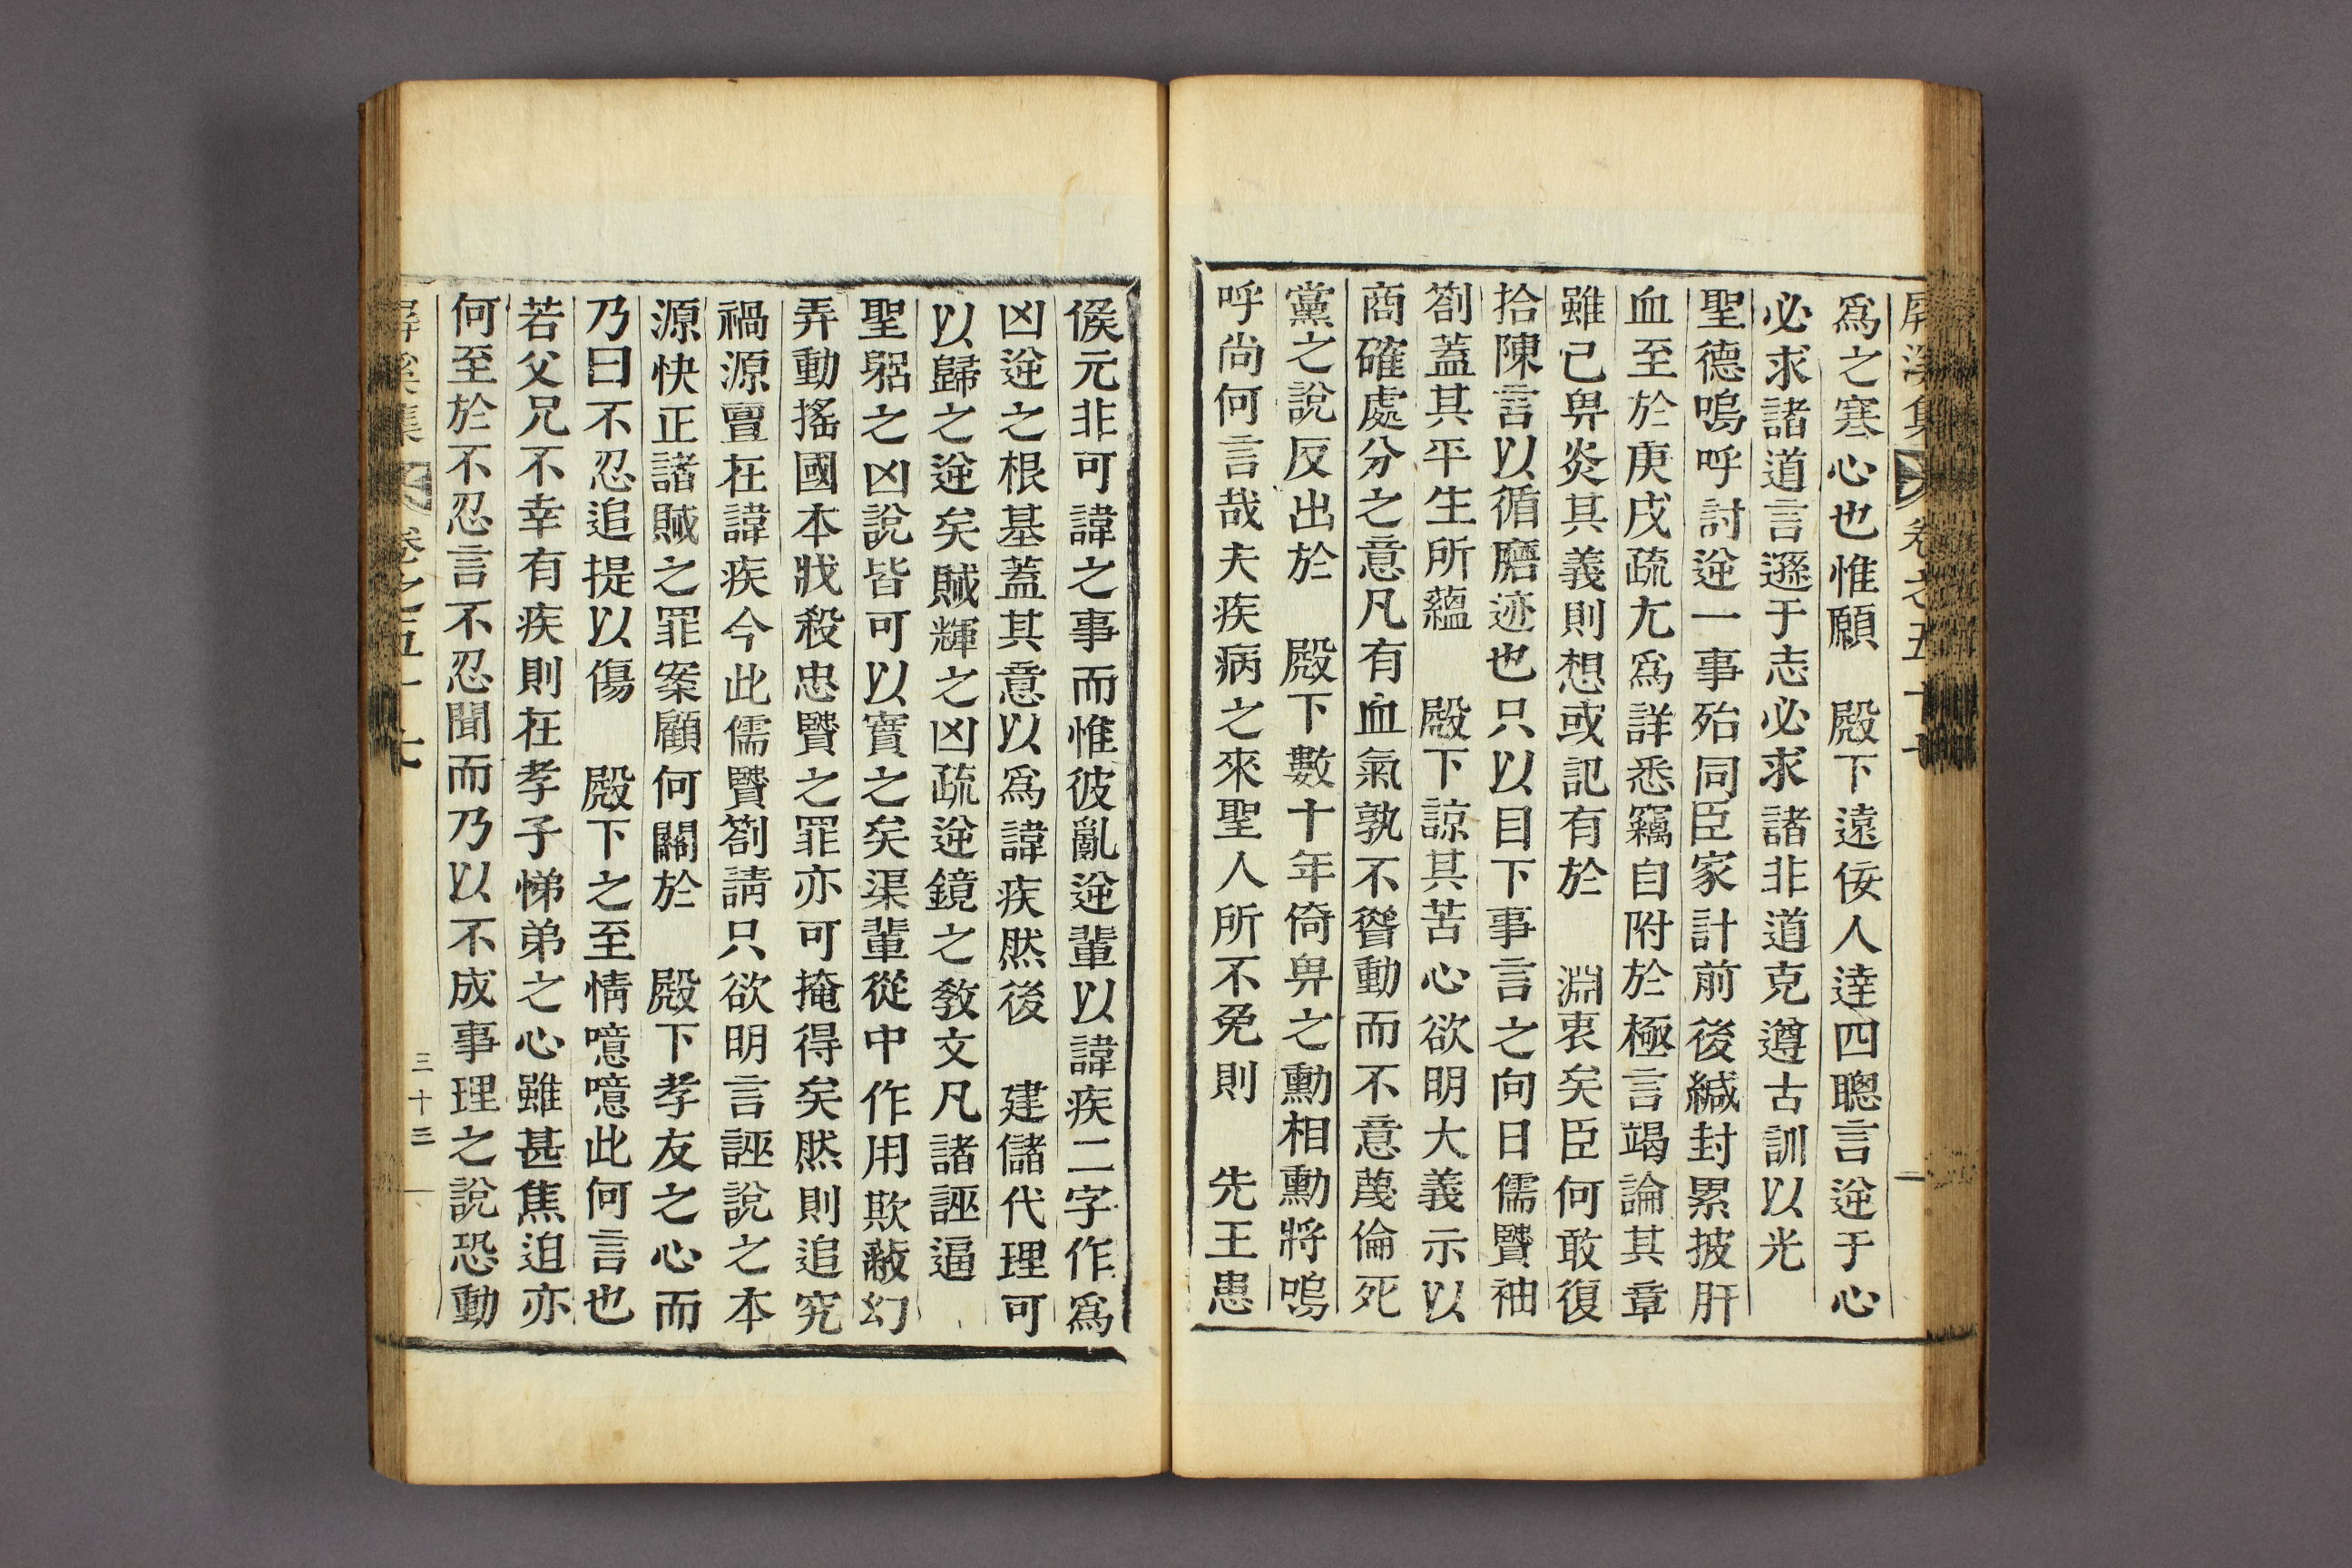 屛溪集 卷之五十七
爲之寒心也惟願 殿下遠佞人達四聰言逆于心
必求諸道言遜于志必求諸非道克遵古訓以光
聖德嗚呼討逆一事殆同臣家計前後緘封累披肝
血至於庚戌疏尤爲詳悉竊自附於極言竭論其章
雖已畀炎其義則想或記有於 淵衷矣臣何敢復
拾陳言以循磨迹也只以目下事言之向日儒賢袖
劄蓋其平生所蘊 殿下諒其苦心欲明大義示以
商確處分之意凡有血氣孰不聳動而不意蔑倫死
黨之說反出於 殿下數十年倚畀之勳相勳將嗚
呼尚何言哉夫疾病之來聖人所不免則 先王患
候元非可諱之事而惟彼亂逆輩以諱疾二字作爲
凶逆之根基蓋其意以爲諱疾然後 建儲代理可
以歸之逆矣賊輝之凶疏逆鏡之敎文凡諸誣逼
聖躬之凶說皆可以實之矣渠輩從中作用欺蔽幻
弄動搖國本戕殺忠賢之罪亦可掩得矣然則追究
禍源亶在諱疾今此儒賢劄請只欲明言誣說之本
源快正諸賊之罪案顧何關於 殿下孝友之心而
乃曰不忍追提以傷 殿下之至情噫噫此何言也
若父兄不幸有疾則在孝子悌弟之心雖甚焦迫亦
何至於不忍言不忍聞而乃以不成事理之說恐動
屛溪集 卷之五十七 三十三